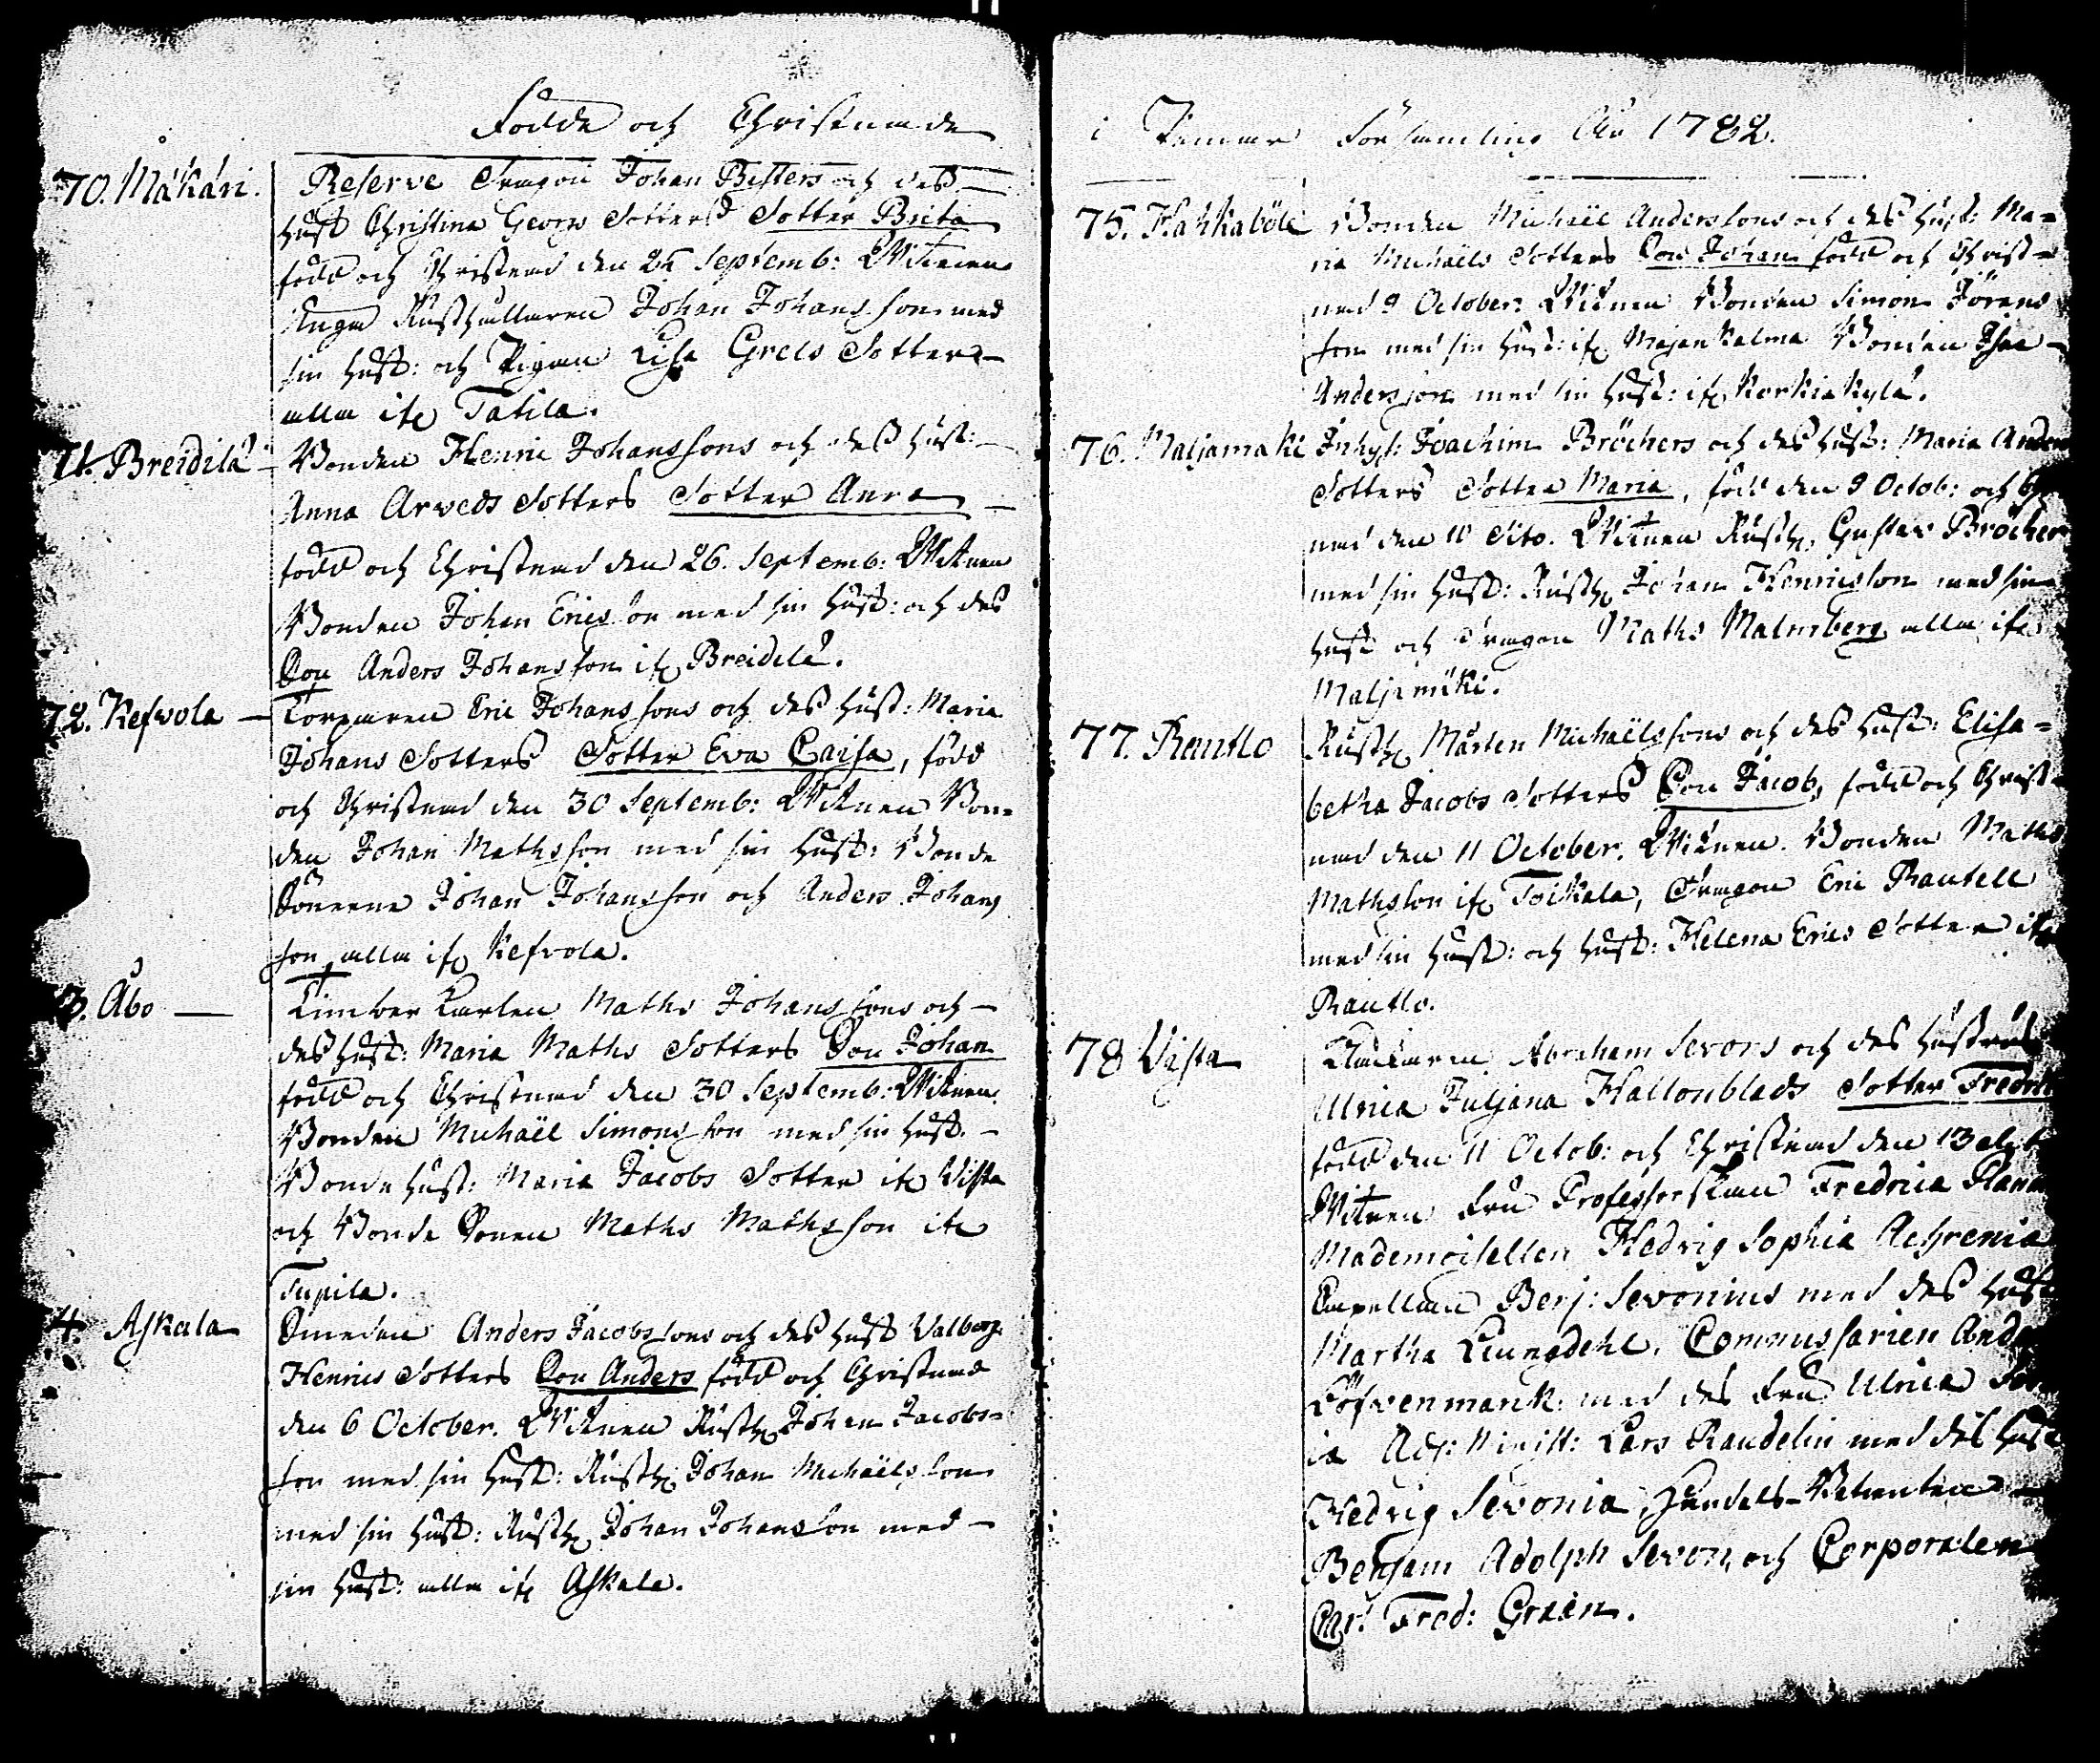 Födde och Christnade
70. Måkäri. Reserve Dragon Johan Bisters och des
Hust Christina Georgs Dotters Dotter Brita
född och Christnad den 25 Septemb: Witnen
Unga Rusthållaren Johan Johansson med
sin Hust: och Pigan Lisa Grels Dotter
alla ifr Tatila.
71. Breidilä Bonden Henric Johanssons och des Hust:
Anna Arveds Dotters Dotter Anna
född och Christnad den 26. Septemb: Witnen
Bonden Johan Ericsson med sin Hust: och des
Son Anders Johansson ifr Breidilä.
72. Kefvola Torparen Eric Johanssons och des Hust: Maria
Johans Dotters Dotter Eva Caisa, född
och Christnad den 30 Septemb: Witnen Bon-
den Johan Mathsson med sin Hust: Bonde
Sönerne Johan Johansson och Anders Johans
son, alla ifr Kefvola.
3. Åbo Timber Karlen Maths Johanssons och
des Hust: Maria Maths Dotters Son Johan
född och Christnad den 30 Septemb: Witnen
Bonden Michaël Simonsson med sin Hust.
Bonde Hust: Maria Jacobs Dotter ifr Vista
och Bonde Sonen Maths Mathsson ifr
Tupila.
4. Askala Smeden Anders Jacobssons och des Hust Valborg
Henrics Dotters Son Anders född och Christnad
den 6 October. Witnen Rusth Johan Jacobs-
son med sin Hust: Rusth Johan Michaëlsson
med sin Hust: Rusth Johan Johansson med
sin Hust: alla ifr Askala.
i Pemar Församling År 1782.
75. Hakkaböle Bonden Michaël Anderssons och des Hust: Ma-
ria Michaëls Dotters Son Johan född och Christ-
nad 9 October. Witnen Bonden Simon Jörans
son med sin Hust: ifr Majankalma Bonden Isac
Andersson med sin Hust: ifr Korkiakylä.
76. Maljamaki Inhys: Joachim Bröchers och des Hust: Maria Anders
Dotters Dotter Maria, född den 9 Octob: och
nad den 10 dito. Witnen Rusth Gustav Bröcher
med sin Hust: Rusth Johan Henricsson med sin
Hust och Dragon Maths Malmberg alla ifr
Maljamäki.
77. Rautlo Rusth Mårten Michaëlssons och des Hust: Elisa-
betha Jacobs Dotters Son Jacob, född och Christ-
nad den 11 October. Witnen. Bonden Maths
Mathsson ifr Toikala, Dragon Eric Rautell
med sin Hust: och Hust: Helena Erics Dotter ifr
Rautlo.
78 Vista Klockaren Abraham Sevons och des Hustrus
Ulrica Juljana Hallonblads Dotter Fredric
född den 11 Octob: och Christnad den 13
Witnen Fru Professorskan Fredrica
Mademoisellen Hedvig Sophia
Capellan Benj: Sevonius med des Hust
Martha Liungdehl. Commissarien And
Löfvenmarck med des Fru Ulrica
Adj: Minist: Lars Randelin med des Hust
Hedvig Sevonia, Handels-Betienten
Benjam Adolph Sevon, och Corporalen
Car: Fred: Green.